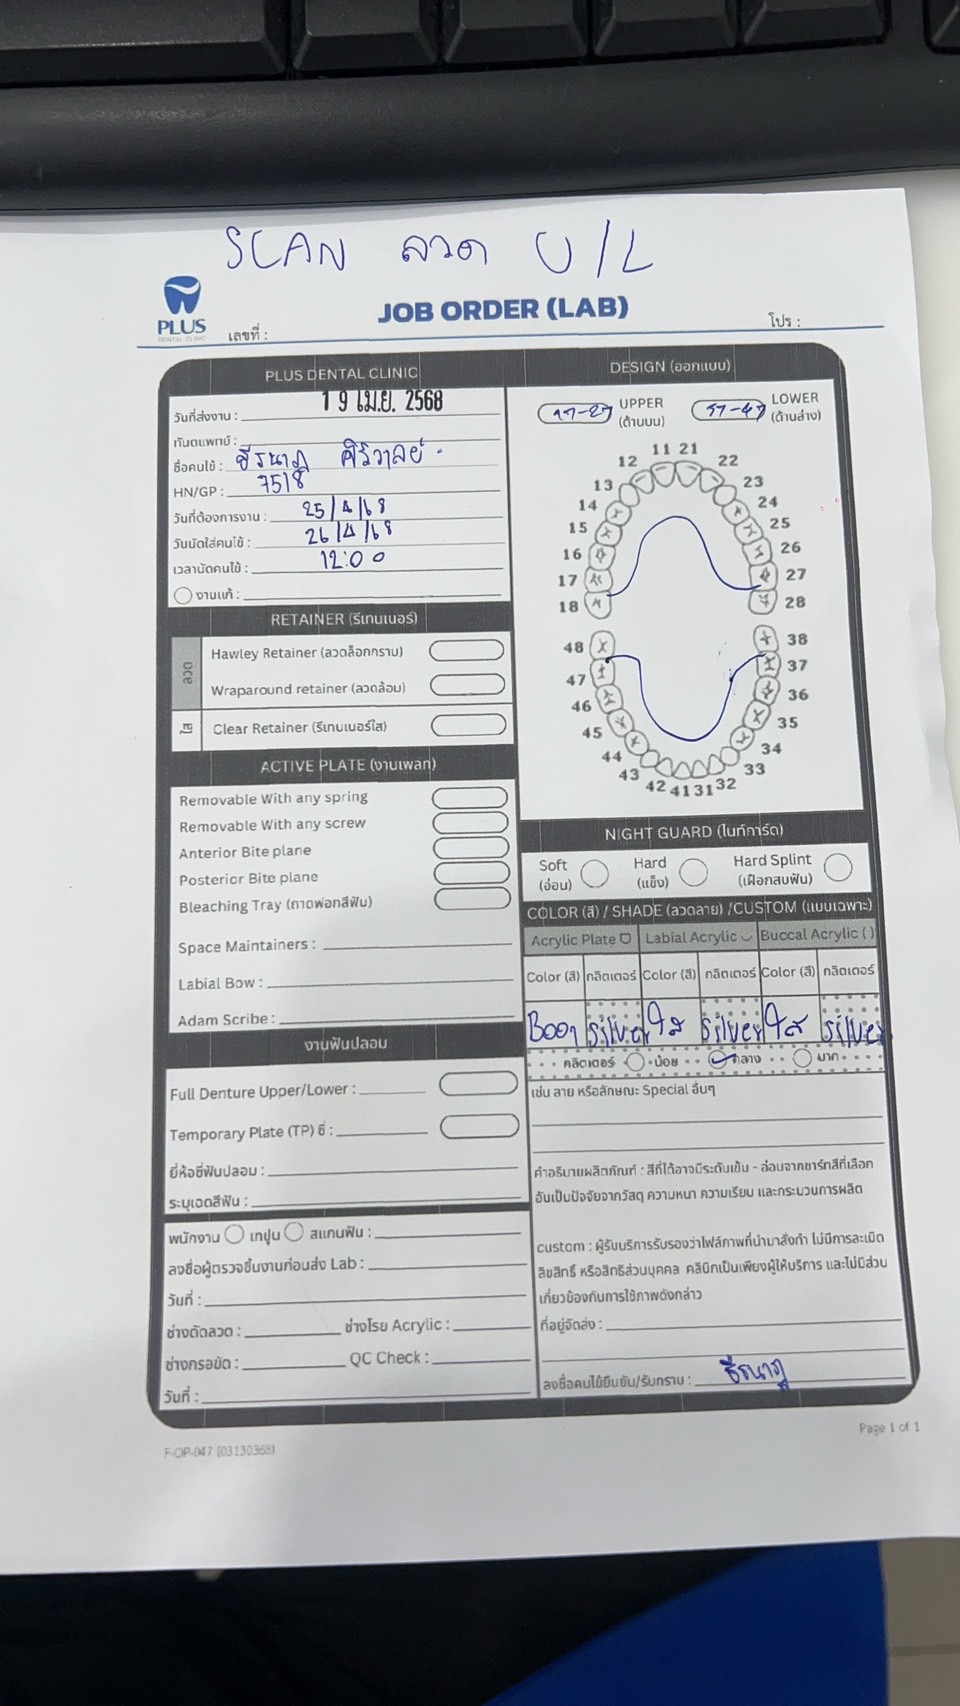 SCAN ลวด U/L
PLUS
DENTAL CLINIC
เลขที่ :
JOB ORDER (LAB)
โปร :
PLUS DENTAL CLINIC
วันที่ส่งงาน : 19 เม.ย. 2568
ทันตแพทย์ :
ชื่อคนไข้ : ธีรนาฏ ศิริวาลย์
HN/GP : 7518
วันที่ต้องการงาน : 25/4/68
วันนัดใส่คนไข้ : 26/4/68
เวลานัดคนไข้ : 12:00
งานแก้ :
RETAINER (รีเทนเนอร์)
ลวด
Hawley Retainer (ลวดล็อกกราม)
Wraparound retainer (ลวดล้อม)
ใส
Clear Retainer (รีเทนเนอร์ใส)
ACTIVE PLATE (งานเพลท)
Removable With any spring
Removable With any screw
Anterior Bite plane
Posterior Bite plane
Bleaching Tray (ถาดฟอกสีฟัน)
Space Maintainers :
Labial Bow :
Adam Scribe :
งานฟันปลอม
Full Denture Upper/Lower :
Temporary Plate (TP) ซี่ :
ยี่ห้อซี่ฟันปลอม :
ระบุเฉดสีฟัน :
พนักงาน เทปูน สแกนฟัน :
ลงชื่อผู้ตรวจชิ้นงานก่อนส่ง Lab :
วันที่ :
ช่างดัดลวด : ช่างโรย Acrylic :
ช่างกรอขัด : QC Check :
วันที่ :
DESIGN (ออกแบบ)
17-27 UPPER (ด้านบน) 37-47 LOWER (ด้านล่าง)
11 21
12 22
13 23
14 24
15 25
16 26
17 27
18 28
48 38
47 37
46 36
45 35
44 34
43 33
42 41 31 32
NIGHT GUARD (ไนท์การ์ด)
Soft (อ่อน) Hard (แข็ง) Hard Splint (เฝือกสบฟัน)
COLOR (สี) / SHADE (ลวดลาย) /CUSTOM (แบบเฉพาะ)
Acrylic Plate Labial Acrylic Buccal Acrylic ( )
Color (สี) กลิตเตอร์ Color (สี) กลิตเตอร์ Color (สี) กลิตเตอร์
B001 Silver ใส Silver ใส Silver
กลิตเตอร์ น้อย กลาง มาก
เช่น ลาย หรือลักษณะ Special อื่นๆ
คำอธิบายผลิตภัณฑ์ : สีที่ได้อาจมีระดับเข้ม - อ่อนจากชาร์ทสีที่เลือก
อันเป็นปัจจัยจากวัสดุ ความหนา ความเรียบ และกระบวนการผลิต
custom : ผู้รับบริการรับรองว่าไฟล์ภาพที่นำมาสั่งทำ ไม่มีการละเมิด
ลิขสิทธิ์ หรือสิทธิส่วนบุคคล คลินิกเป็นเพียงผู้ให้บริการ และไม่มีส่วน
เกี่ยวข้องกับการใช้ภาพดังกล่าว
ที่อยู่จัดส่ง :
ลงชื่อคนไข้ยืนยัน/รับทราบ : ธีรนาฏ
F-OP-047 (03130368)
Page 1 of 1